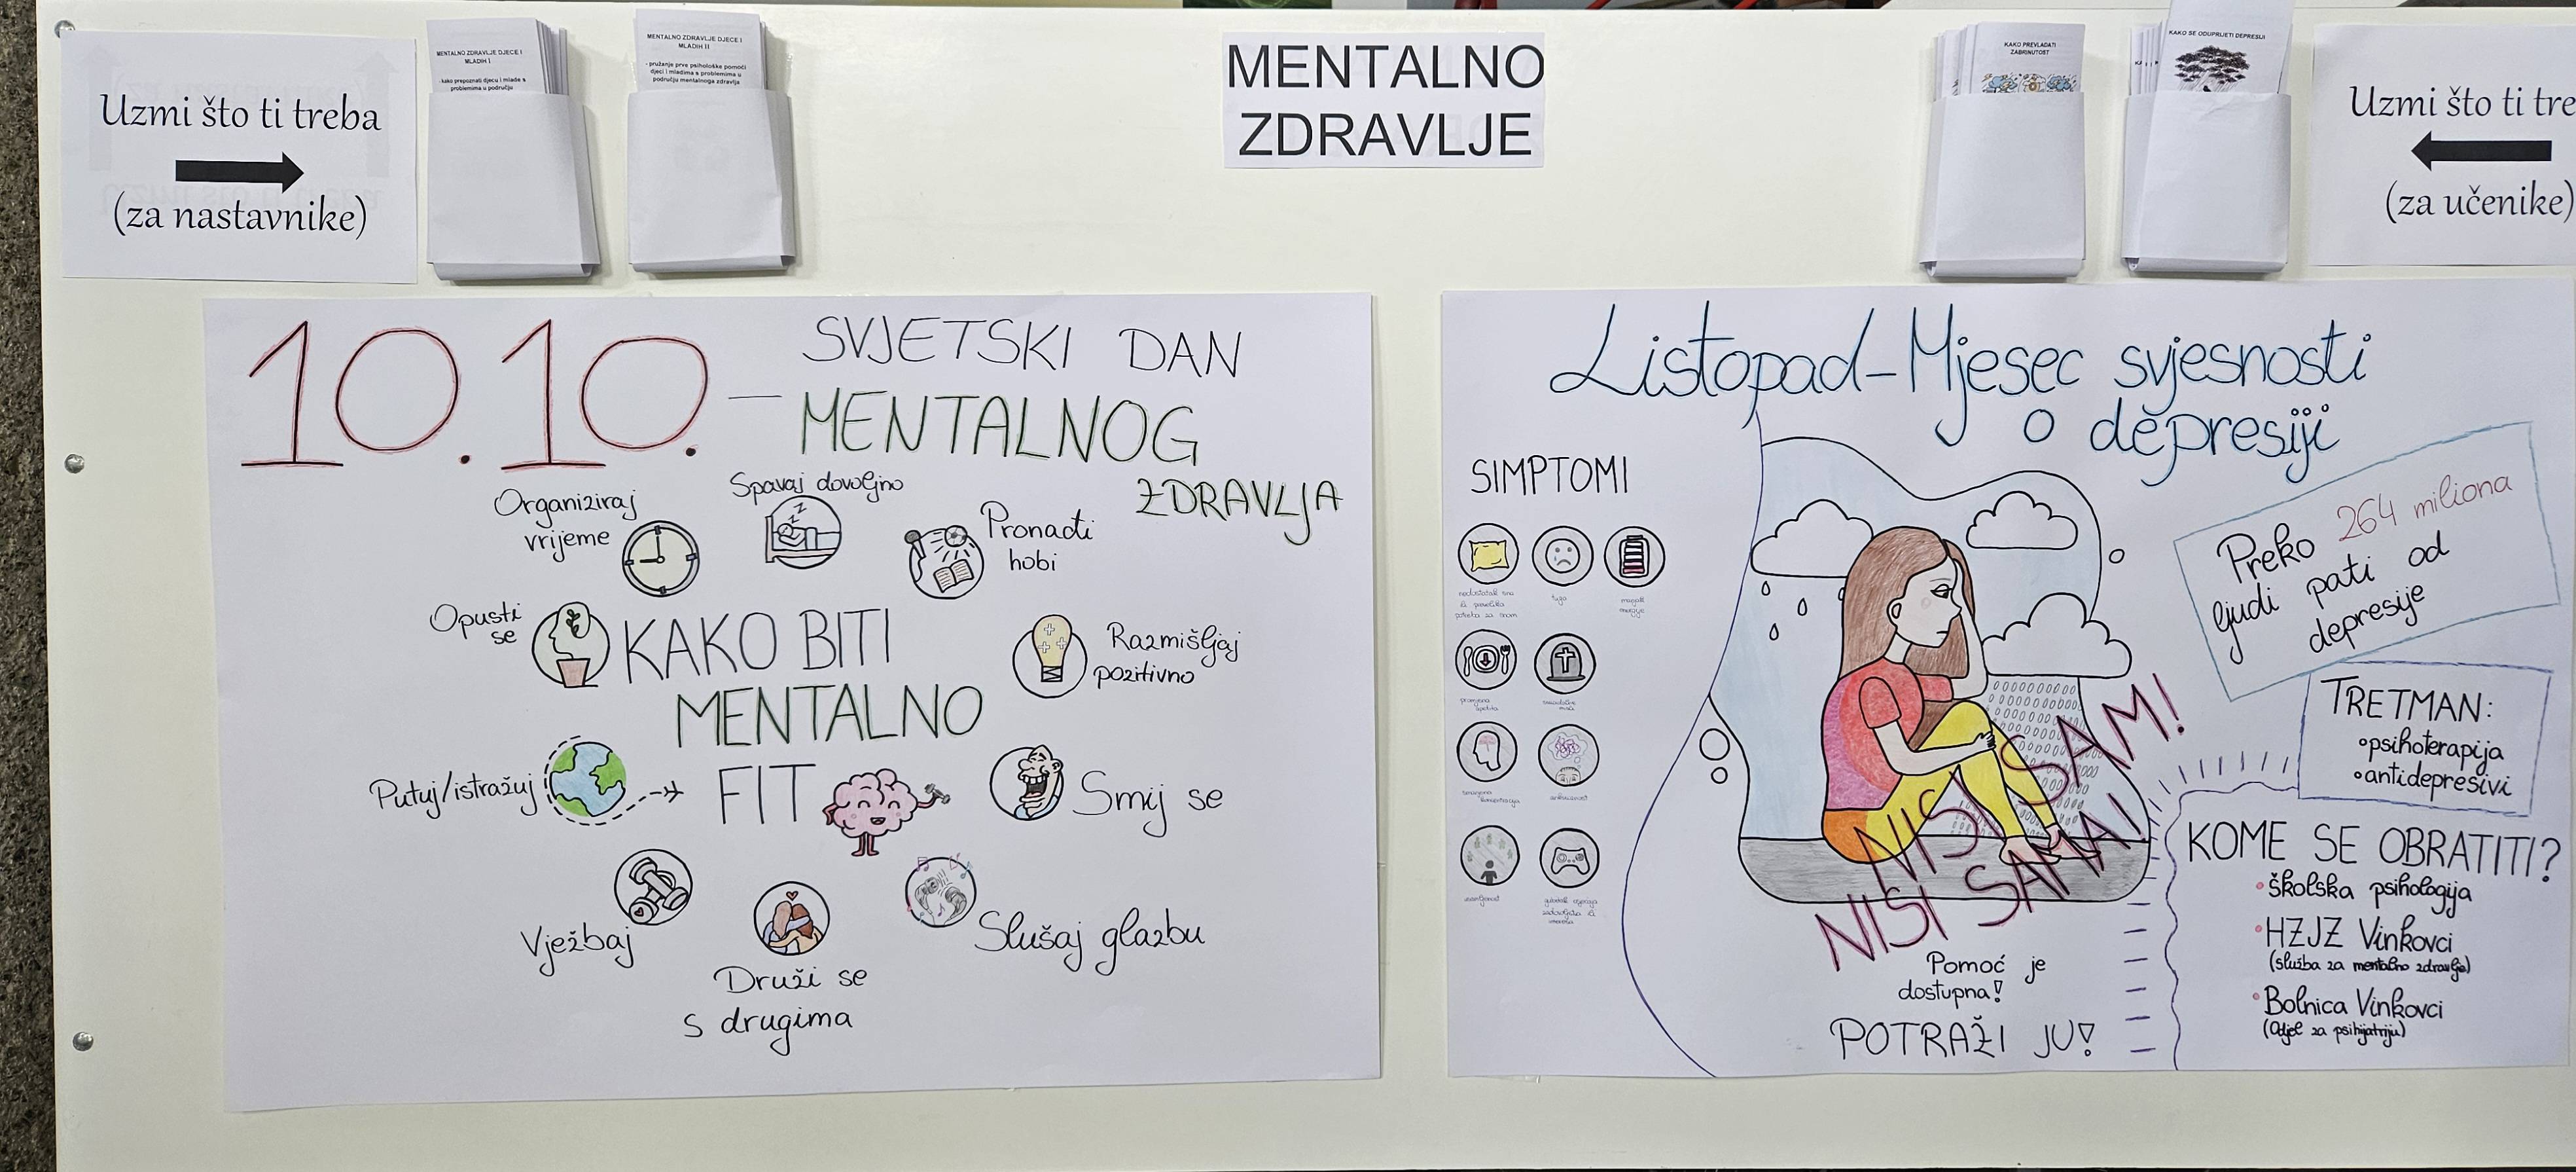 Uzmi što ti treba
(za nastavnike)
MENTALNO ZDRAVLJE DJECE I
MLADIH I
- kako prepoznati djecu i mlade s
problemima u području
MENTALNO ZDRAVLJE DJECE I
MLADIH II
- pružanje prve psihološke pomoći
djeci i mladima s problemima u
području mentalnoga zdravlja
MENTALNO
ZDRAVLJE
KAKO PREVLADATI
ZABRINUTOST
KAKO SE ODUPRIJETI DEPRESIJI
Uzmi što ti tre
(za učenike)
10.10. – SVJETSKI DAN
MENTALNOG
ZDRAVLJA
Organiziraj
vrijeme
Spavaj dovoljno
Pronađi
hobi
Opusti
se
KAKO BITI
MENTALNO
FIT
Razmišljaj
pozitivno
Putuj/istražuj
Smij se
Vježbaj
Druži se
s drugima
Slušaj glazbu
Listopad-Mjesec svjesnosti
o depresiji
SIMPTOMI
nedostatak sna
ili prevelika
potreba za snom
tuga
manjak
energije
promjena
apetita
Preko 264 miliona
ljudi pati od
depresije
TRETMAN:
psihoterapija
antidepresivi
NISI SAM!
NISI SAMA!
Pomoć je
dostupna!
POTRAŽI JU!
KOME SE OBRATITI?
Školska psihologija
HZJZ Vinkovci
(služba za mentalno zdravlje)
Bolnica Vinkovci
(Odjel za psihijatriju)